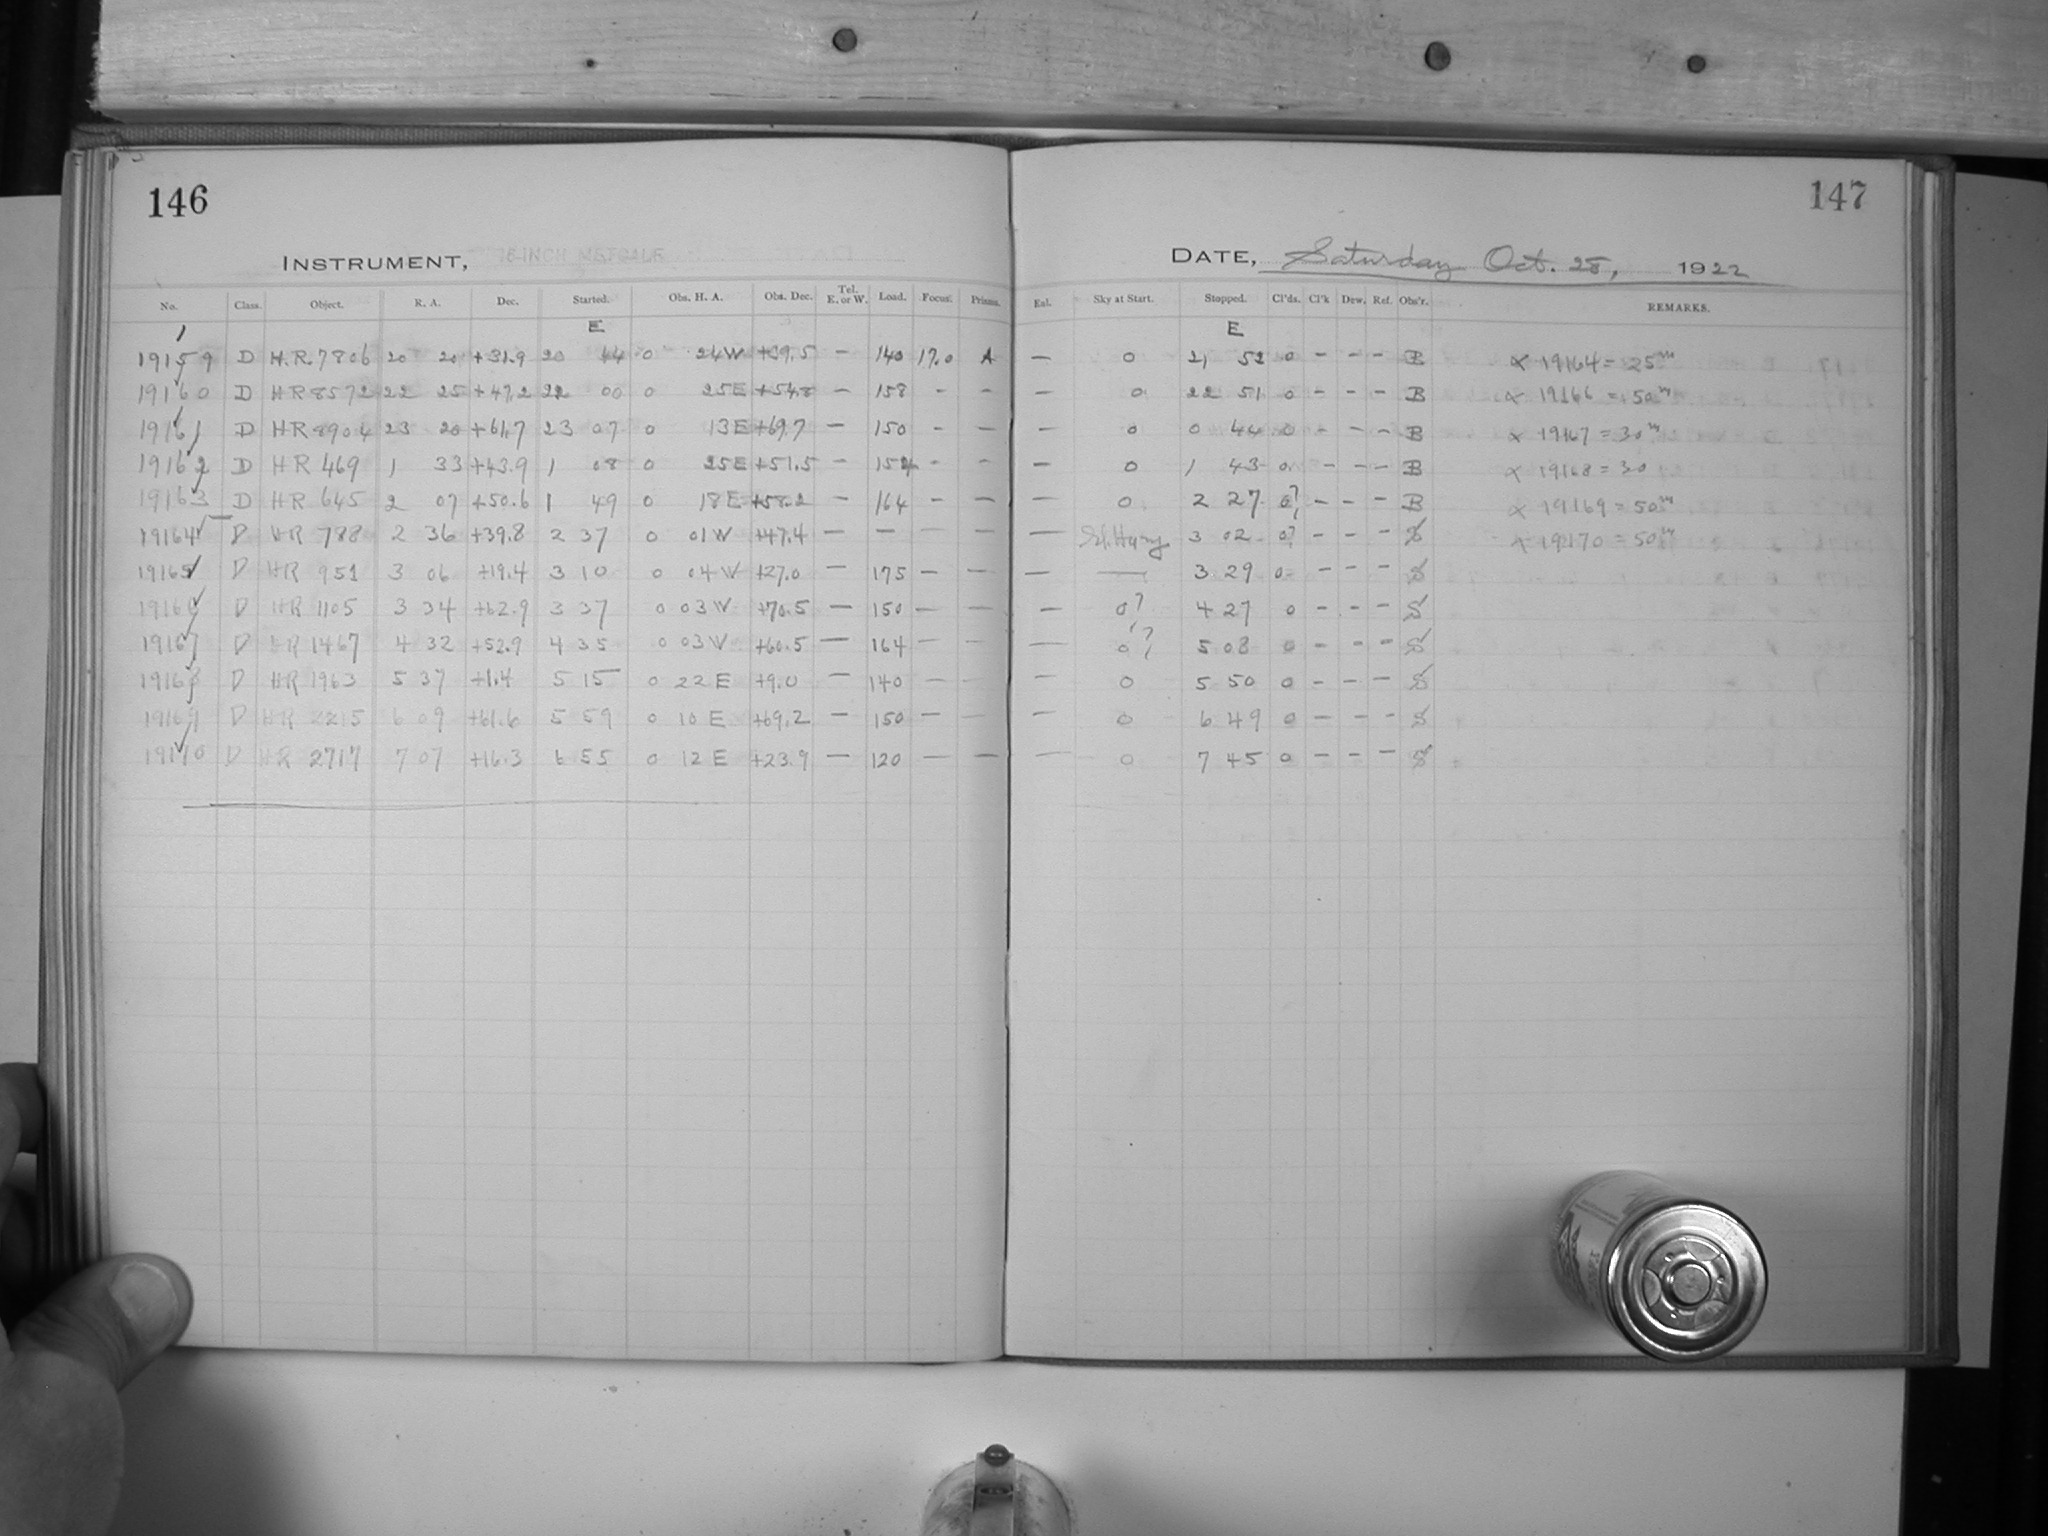 146
147
INSTRUMENT, 16-INCH METCALF
DATE, Saturday Oct. 28, 1922
No. Class. Object. R. A. Dec. Started. Obs. H. A. Obs. Dec. Tel. E. or W. Load. Focus. Prisms. Eal. Sky at Start. Stopped. Cl'ds. Cl'k Dew. Ref. Obs'r. REMARKS.
E E
19159 D H.R. 7806 20 20 +31.9 20 44 0 24 W +39.5 – 140 17.0 A – 0 21 52 0 – – – B α 19164 = 25m
19160 D HR 8572 22 25 +47.2 22 00 0 25 E +54.8 – 158 – – – 0 22 51 0 – – – B α 19166 = 50m
19161 D HR 8904 23 20 +61.7 23 07 0 13 E +69.7 – 150 – – – 0 0 44 0 – – – B α 19167 = 30m
19162 D HR 469 1 33 +43.9 1 08 0 25 E +51.5 – 152 – – – 0 1 43 0 – – – B α 19168 = 30
19163 D HR 645 2 07 +50.6 1 49 0 18 E +58.2 – 164 – – – 0 2 27 0? – – – B α 19169 = 50m
19164 D HR 788 2 36 +39.8 2 37 0 01 W +47.4 – – – – – Sl. Hazy 3 02 0? – – – S α 19170 = 50m
19165 D HR 951 3 06 +19.4 3 10 0 04 W +27.0 – 175 – – – – 3 29 0 – – – S
19166 D HR 1105 3 34 +62.9 3 37 0 03 W +70.5 – 150 – – – 0? 4 27 0 – – – S
19167 D HR 1467 4 32 +52.9 4 35 0 03 W +60.5 – 164 – – – 0? 5 08 0 – – – S
19168 D HR 1963 5 37 +1.4 5 15 0 22 E +9.0 – 140 – – – 0 5 50 0 – – – S
19169 D HR 2215 6 09 +61.6 5 59 0 10 E +69.2 – 150 – – – 0 6 49 0 – – – S
19170 D HR 2717 7 07 +16.3 6 55 0 12 E +23.9 – 120 – – – 0 7 45 0 – – – S